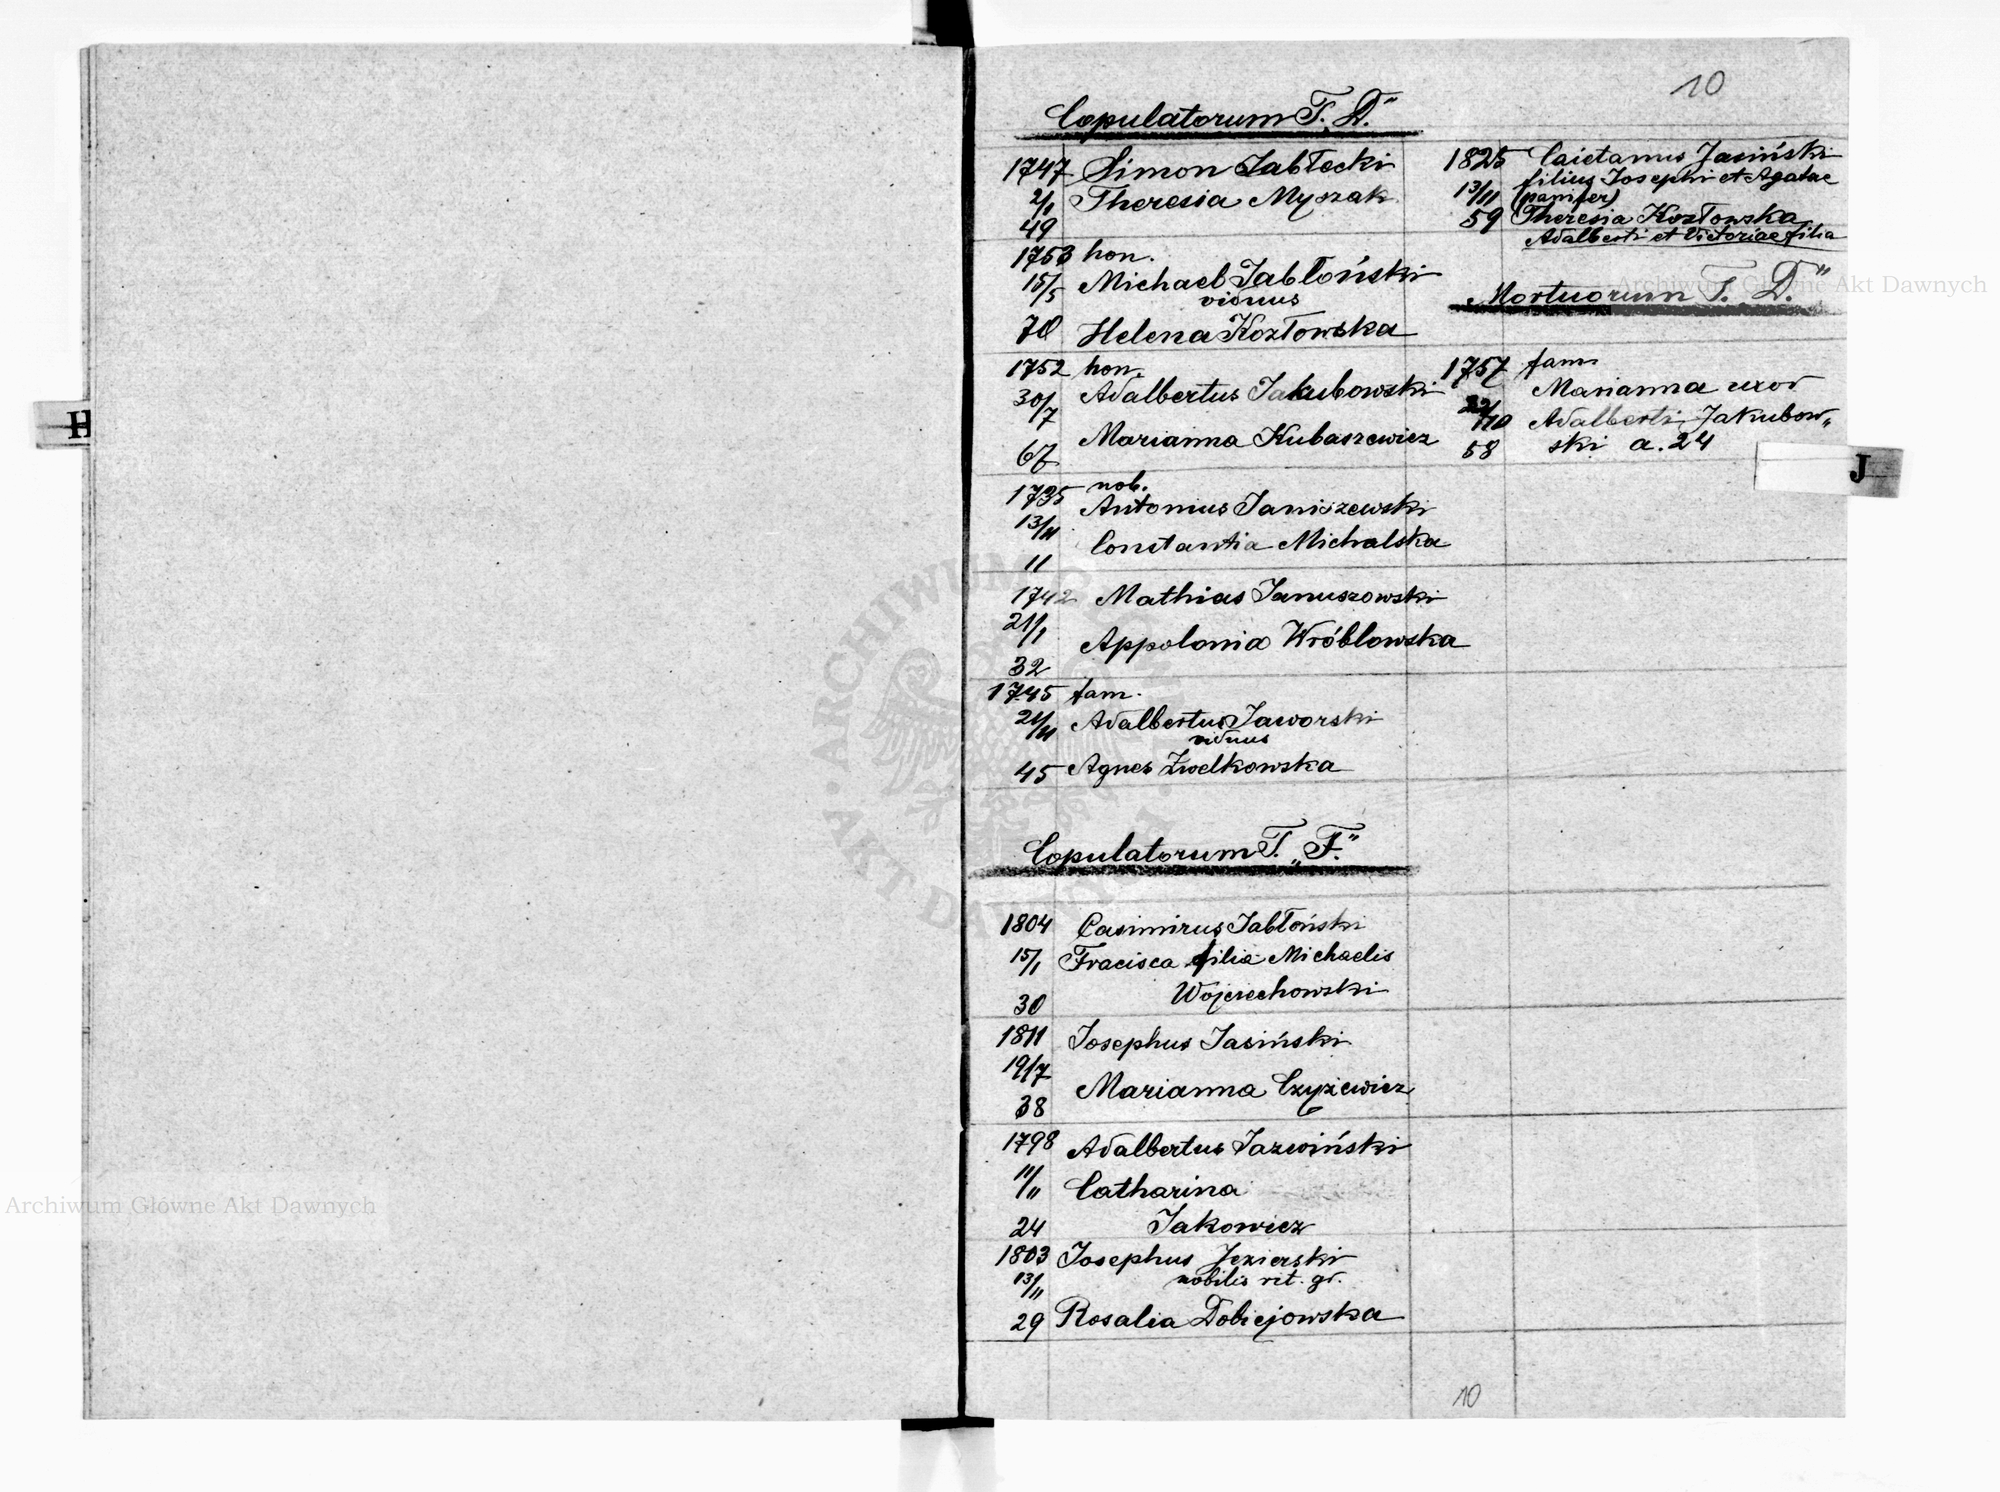 10
Copulatorum T. D."
1747 Simon Jabłecki
2/1 Theresia Myszak
49
1753 hon.
15/5 Michael Jabłoński
viduus
70 Helena Kozłowska
1752 hon.
30/7 Adalbertus Jakubowski
67 Marianna Kubaszewicz
1735 nob.
13/11 Antonius Janiszewski
11 Constantia Michalska
1742 Mathias Januszowski
21/1 Appolonia Wróblowska
32
1745 fam.
21/11 Adalbertus Jaworski
viduus
45 Agnes Zwelkowska
Copulatorum T. „F."
1804 Casimirus Jabłoński
15/1 Fracisca filia Michaelis
Wojciechowski
30
1811 Josephus Jasiński
19/7 Marianna Czyżewicz
38
1798 Adalbertus Jazwiński
11/11 Catharina
24 Jakowicz
1803 Josephus Jezierski
13/11 nobilis vit. gr.
29 Rosalia Dobiejowska
1825 Caietanus Jasiński
filius Josephi et Agatae
13/11 (panifer)
59 Theresia Kozłowska
Adalberti et Victoriae filia
Mortuorum T. D."
1757 fam.
Marianna uxor
22/10 Adalberti Jakubow„
58 ski a. 24
10
H
J
Archiwum Główne Akt Dawnych
Archiwum Główne Akt Dawnych
ARCHIWUM GŁÓWNE AKT DAWNYCH